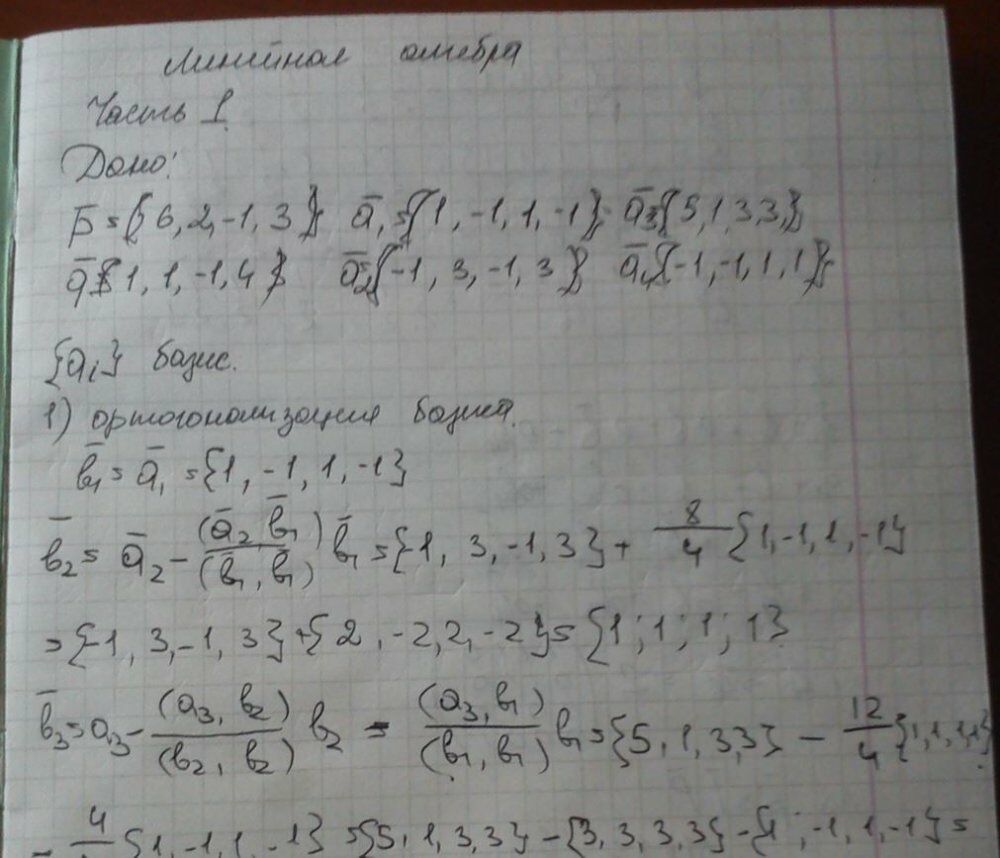 Линейная алгебра
Часть I.
Дано:
p̄ = {6, 2, -1, 3} ā₁ = {1, -1, 1, -1} ā₃ {5, 1, 3, 3,}
ā {1, 1, -1, 4} ā₂ = {-1, 3, -1, 3} ā₄ {-1, -1, 1, 1}
{aᵢ} базис.
1) ортогонализация базиса.
b̄₁ = ā₁ = {1, -1, 1, -1}
b̄₂ = ā₂ - (ā₂ b̄₁)/(b̄₁, b̄₁) b̄₁ = {1, 3, -1, 3} + 8/4 {1, -1, 1, -1}
= {-1, 3, -1, 3} + {2, -2, 2, -2} = {1; 1; 1; 1}
b̄₃ = a₃ - (a₃, b₂)/(b₂, b₂) b₂ = (a₃, b₁)/(b₁, b₁) b₁ = {5, 1, 3, 3} - 12/4 {1, 1, 1, 1}
- 4 {1, -1, 1, -1} = {5, 1, 3, 3} - {3, 3, 3, 3} - {1; -1, 1, -1} =